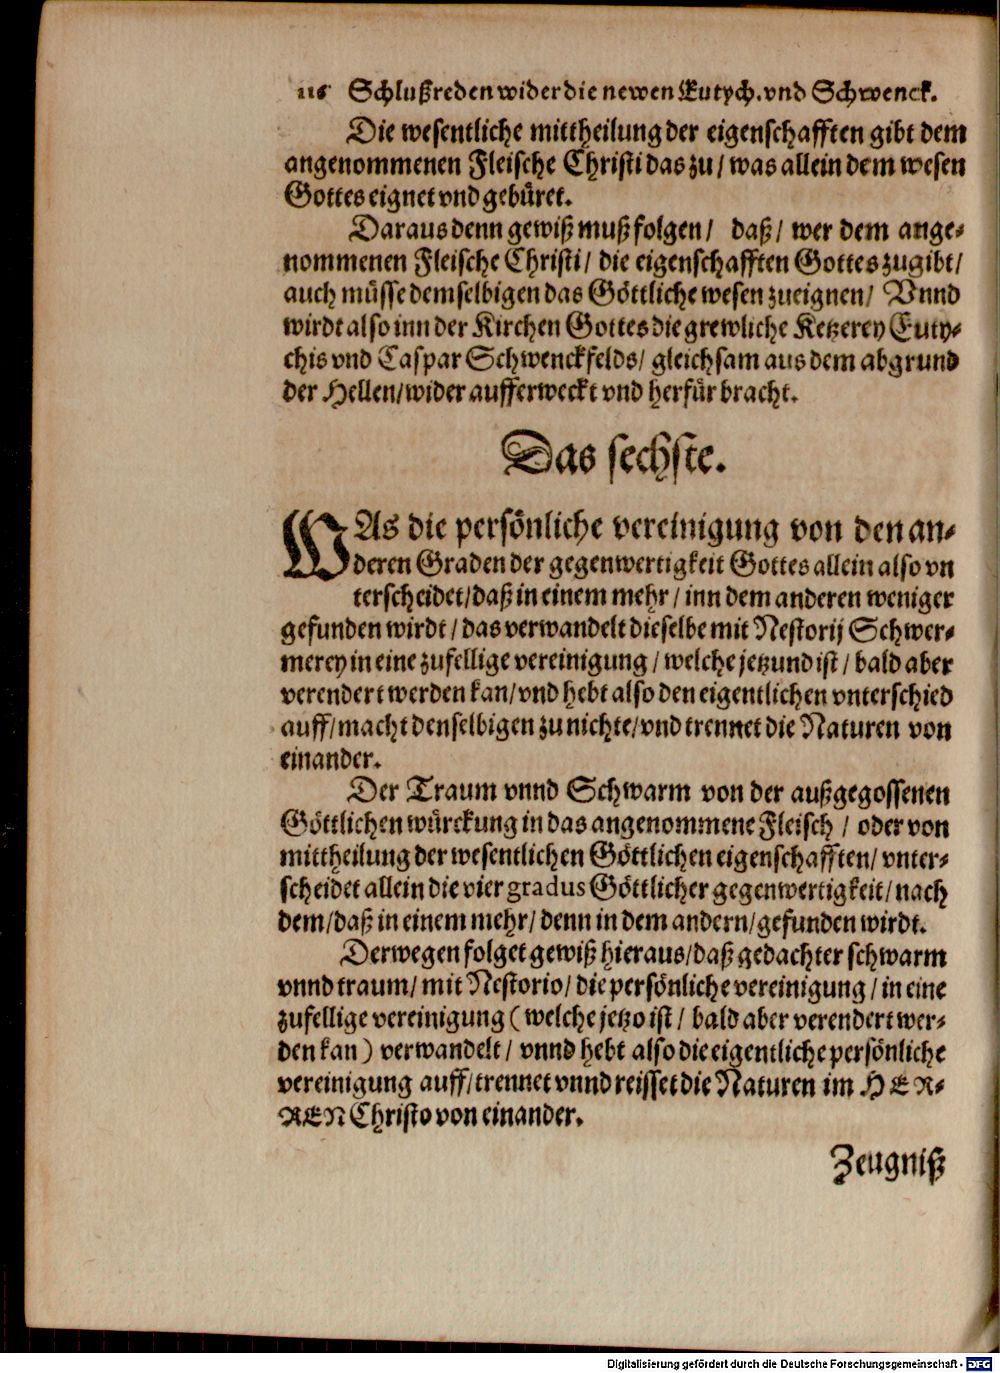 116 Schlußreden wider die newen Eutych. vnd Schwenck.
Die wesentliche mittheilung der eigenschafften gibt dem
angenommenen Fleische Christi das zu / was allein dem wesen
Gottes eignet vnd gebüret.
Daraus denn gewiß muß folgen / daß / wer dem ange-
nommenen Fleische Christi / die eigenschafften Gottes zugibt /
auch müsse demselbigen das Göttliche wesen zueignen / Vnnd
wirdt also inn der Kirchen Gottes die grewliche Ketzerey Euty-
chis vnd Caspar Schwenckfelds / gleichsam aus dem abgrund
der Hellen / wider aufferweckt vnd herfür bracht.
Das sechste.
WAs die persönliche vereinigung von den an-
deren Graden der gegenwertigkeit Gottes allein also vn
terscheidet / daß in einem mehr / inn dem anderen weniger
gefunden wirdt / das verwandelt dieselbe mit Nestorij Schwer-
merey in eine zufellige vereinigung / welche jetzund ist / bald aber
verendert werden kan / vnd hebt also den eigentlichen vnterschied
auff / macht denselbigen zu nichte / vnd trennet die Naturen von
einander.
Der Traum vnnd Schwarm von der außgegossenen
Göttlichen würckung in das angenommene Fleisch / oder von
mittheilung der wesentlichen Göttlichen eigenschafften / vnter-
scheidet allein die vier gradus Göttlicher gegenwertigkeit / nach
dem / daß in einem mehr / denn in dem andern / gefunden wirdt.
Derwegen folget gewiß hieraus / daß gedachter schwarm
vnnd traum / mit Nestorio / die persönliche vereinigung / in eine
zufellige vereinigung ( welche jetzo ist / bald aber verendert wer-
den kan ) verwandelt / vnnd hebt also die eigentliche persönliche
vereinigung auff / trennet vnnd reisset die Naturen im HER-
REN Christo von einander.
Zeugniß
Digitalisierung gefördert durch die Deutsche Forschungsgemeinschaft - DFG